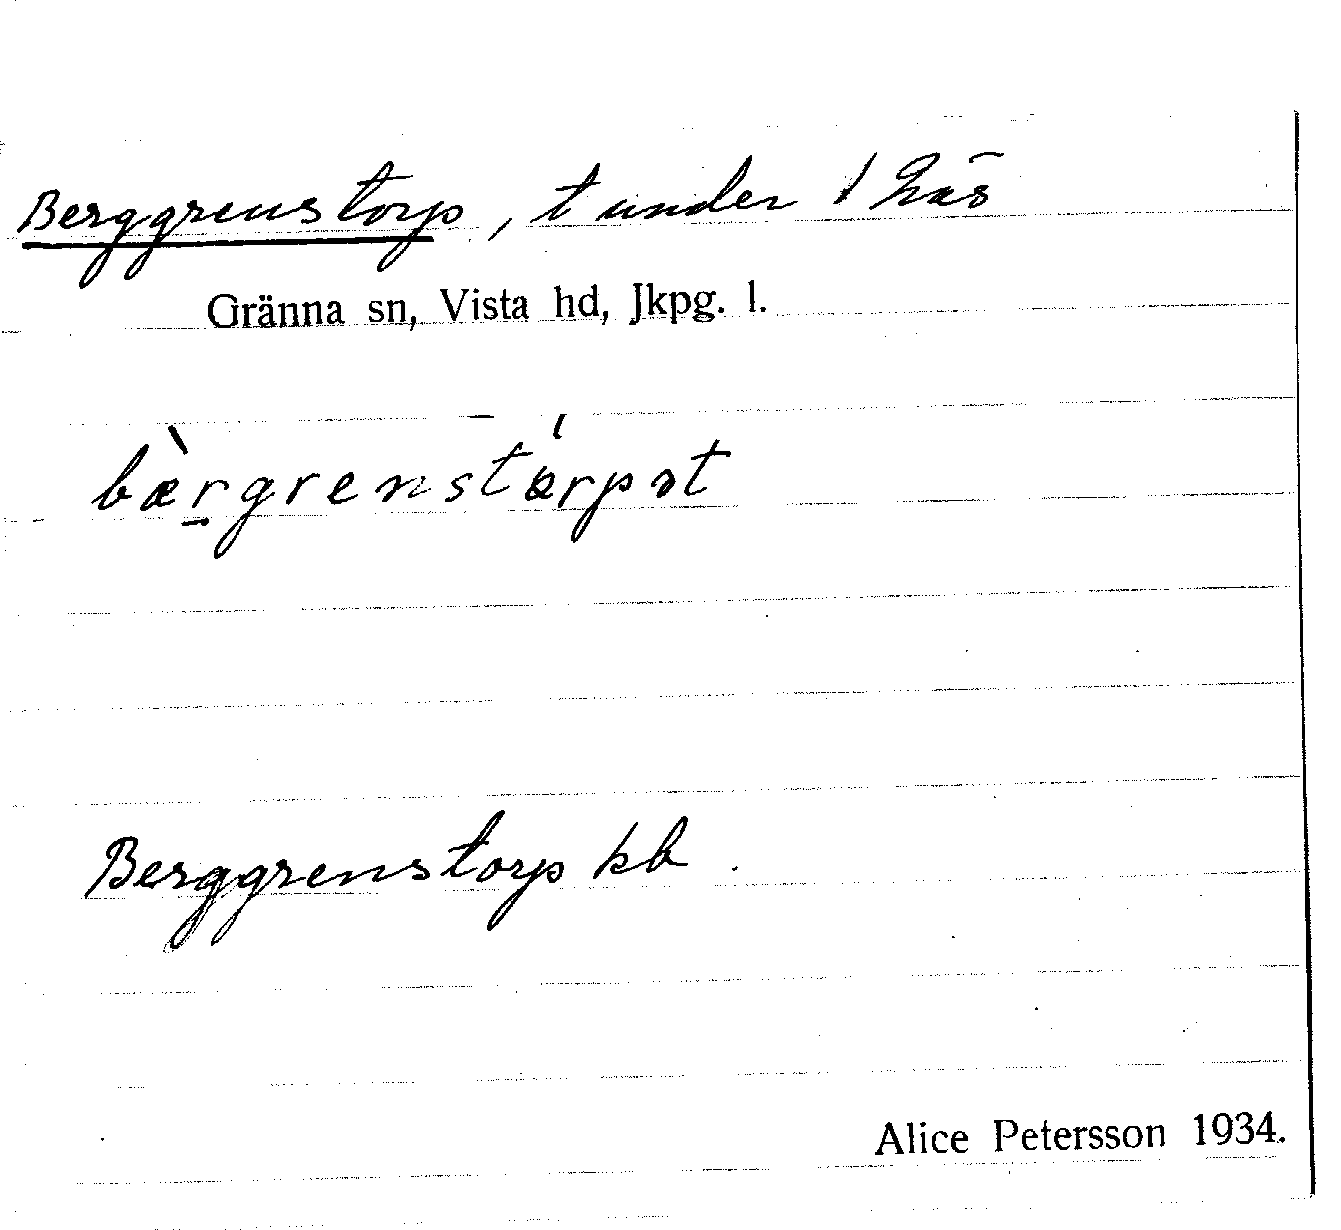 Berggrenstorp, t under 1
Gränna sn, Vista hd, Jkpg. l.
bæ̀rgrenstárpət
Berggrenstorp kb.
Alice Petersson 1934.